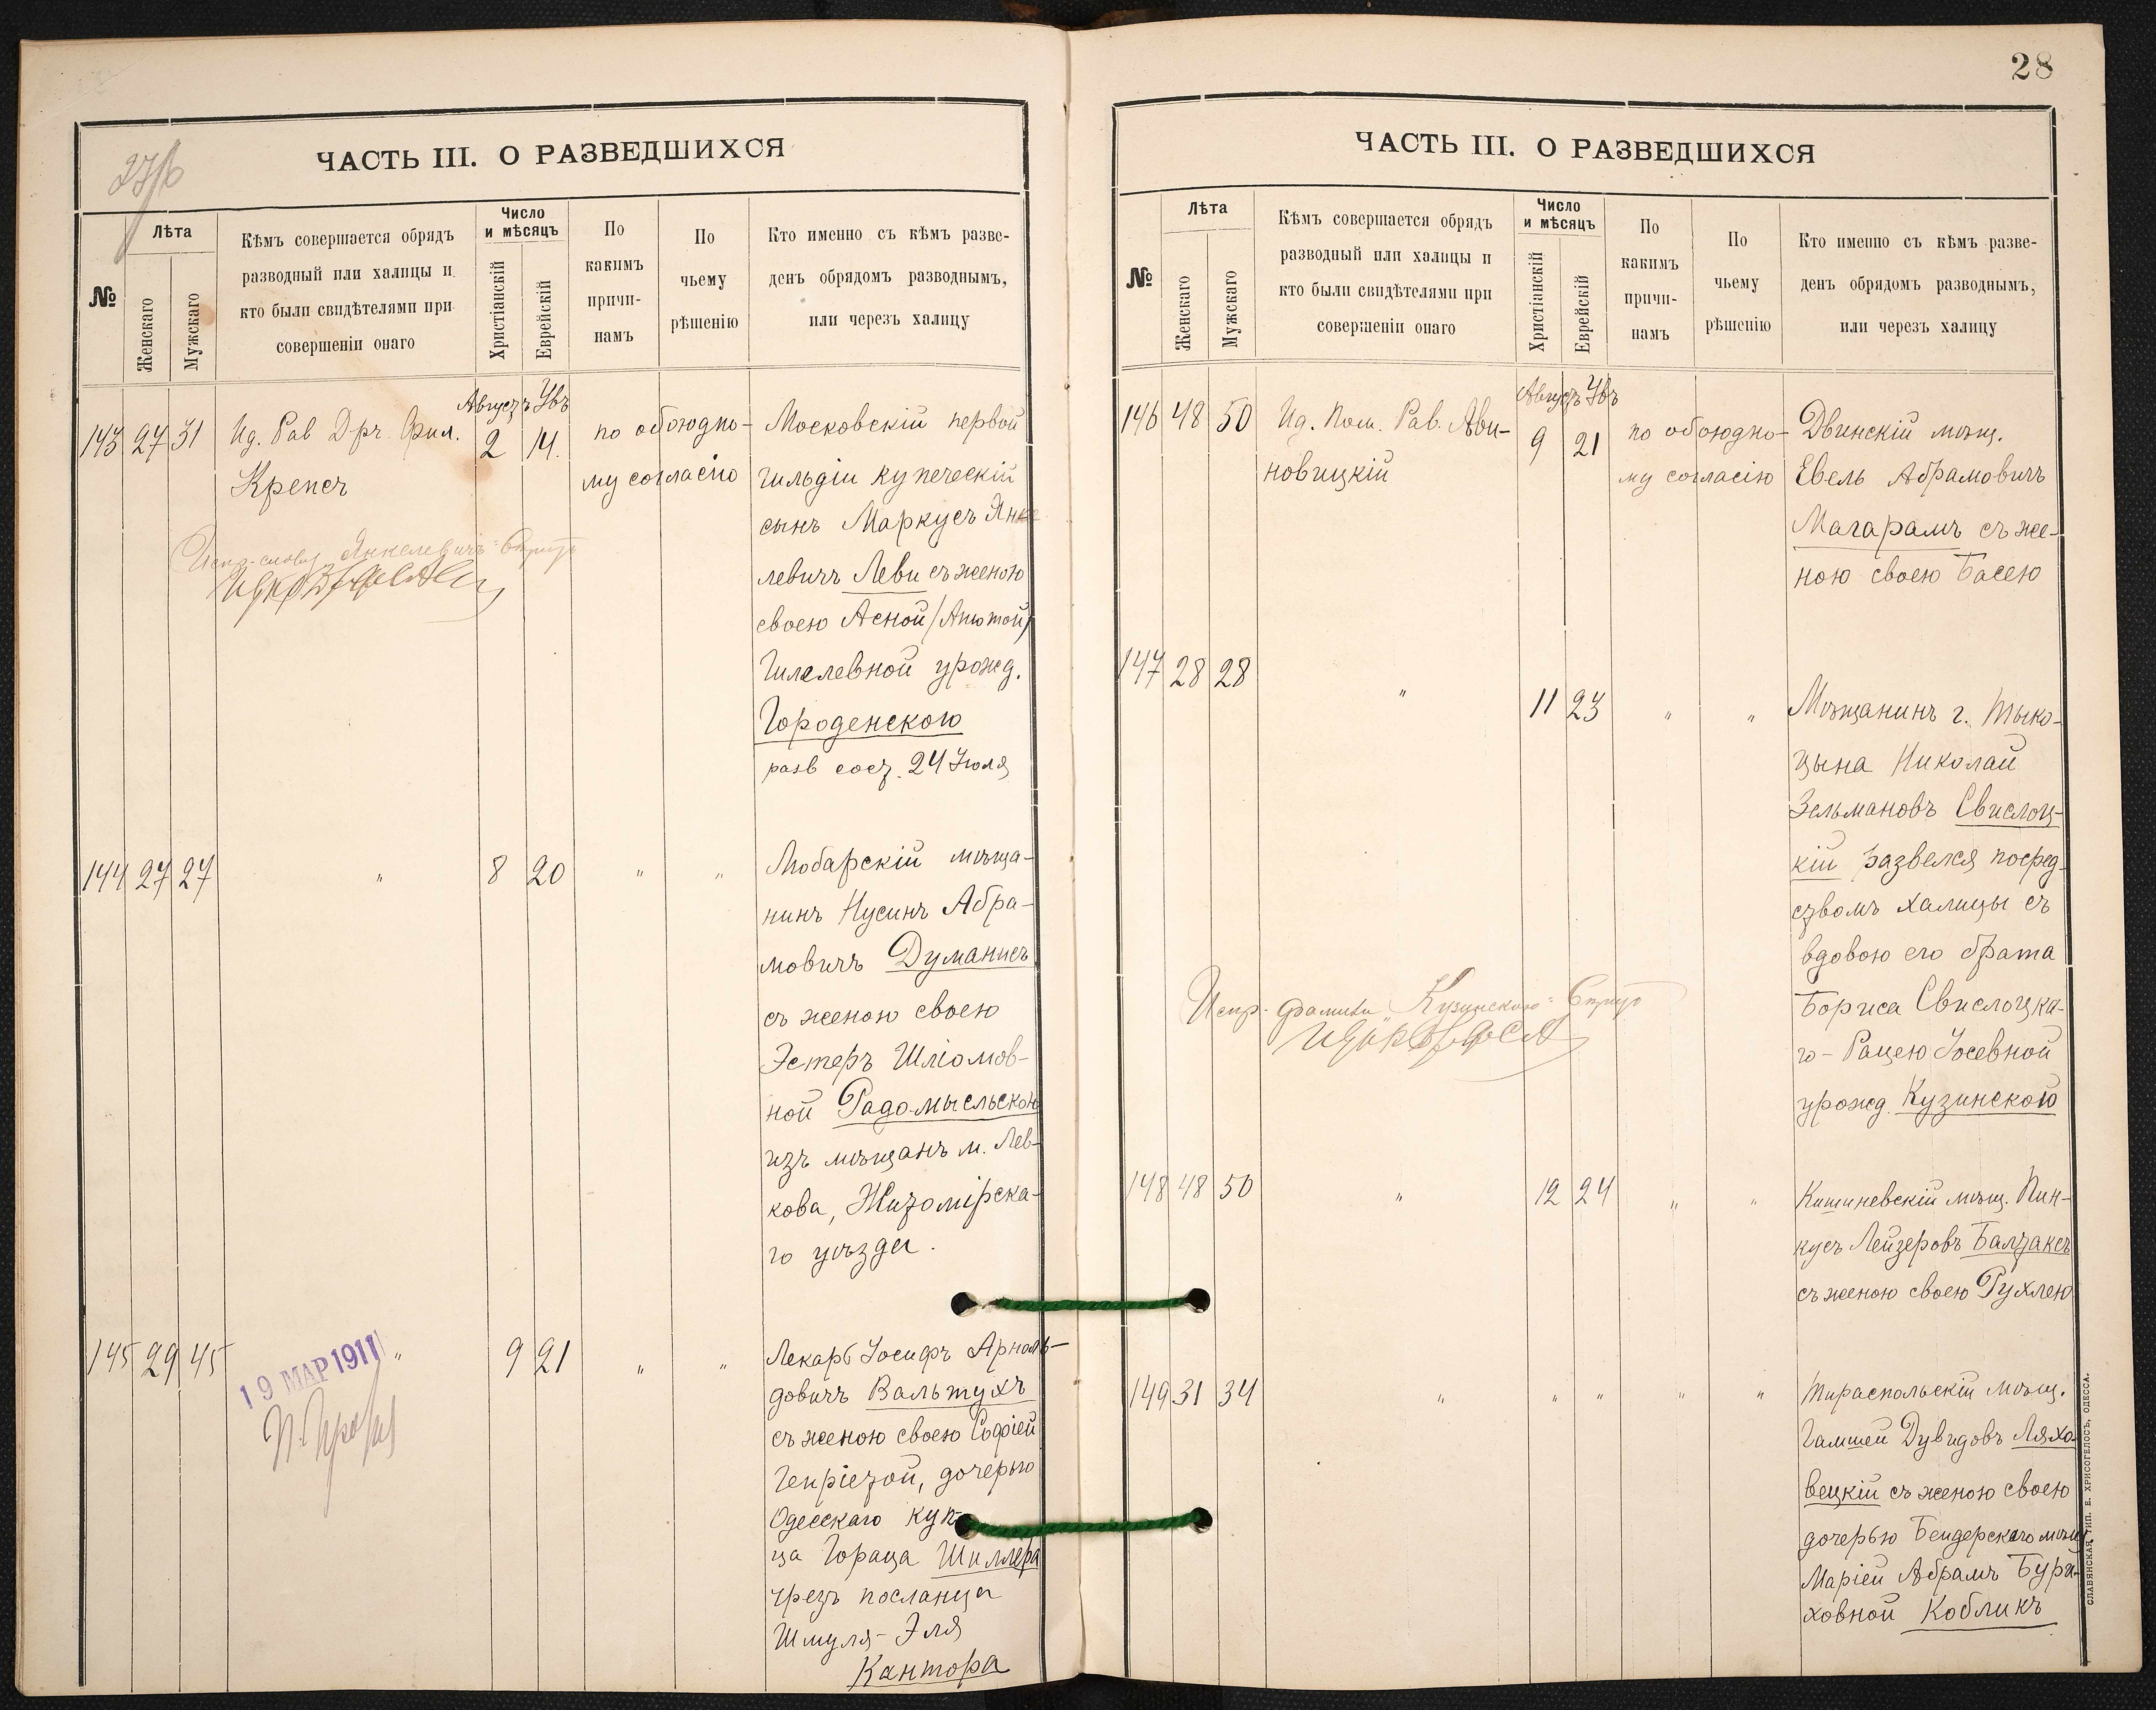 ЧАСТЬ III. О РАЗВЕДШИХСЯ
№
Лѣта
Женскаго
Мужскаго
Кѣмъ совершается обрядъ
разводный или халицы и
кто были свидѣтелями при
совершеніи онаго
Число
и мѣсяцъ
Христіанскій
Еврейскій
По
какимъ
причи-
намъ
По
чьему
рѣшенію
Кто именно съ кѣмъ разве-
денъ обрядомъ разводнымъ,
или черезъ халицу
143 27 31 Ид. Рав Дръ Фил.
Крепсъ
Августъ Увъ
2 14.
по обоюдно-
му согласію
Московскій первой
гильдіи купеческій
сынъ Маркусъ Янке
левичъ Леви съ женою
своею Асной /Анютой/
Гилелевной урожд.
Городенскою
разв сост. 24 Іюля
Испр. слову Янкелевичъ
144 27 27 " 8 20 " "
Любарскій мѣща-
нинъ Нусинъ Абра-
мовичъ Думанисъ
съ женою своею
Эстеръ Шліомов-
ной Радомысльскою
изъ мѣщанъ м. Лев-
кова, Житомірска-
го уѣзда.
145 29 45 " 9 21 " "
Лекарь Іосифъ Арноль-
довичъ Вальтухъ
съ женою своею Софіей
Генріетой, дочерью
Одесскаго куп-
ца Гораца Шиллера
чрезъ посланца
Шмуля-Эля
Кантора
19 МАР 1911
28
ЧАСТЬ III. О РАЗВЕДШИХСЯ
№
Лѣта
Женскаго
Мужскаго
Кѣмъ совершается обрядъ
разводный или халицы и
кто были свидѣтелями при
совершеніи онаго
Число
и мѣсяцъ
Христіанскій
Еврейскій
По
какимъ
причи-
намъ
По
чьему
рѣшенію
Кто именно съ кѣмъ разве-
денъ обрядомъ разводнымъ,
или черезъ халицу
146 48 50 Ид. Пом. Рав. Яви-
новицкій
Августъ Увъ
9 21
по обоюдно-
му согласію
Двинскій мѣщ.
Евель Абрамовичъ
Магарамъ съ же-
ною своею Басею
147 28 28 " 11 23 " "
Мѣщанинъ г. Тыко-
цына Николай
Зельмановъ Свислоц-
кій развелся посред-
ствомъ халицы съ
вдовою его брата
Бориса Свислоцка-
го - Рацею Іосевной
урожд. Кузинской
Испр. фамили Кузинскою
148 48 50 " 12 24 " "
Кишиневскій мѣщ. Пин-
кусъ Лейзеровъ Балтаксъ
съ женою своею Рухлею
149 31 34 " " " " "
Тираспольскій мѣщ.
Гамшей Дувидовъ Ляхо-
вецкій съ женою своею
дочерью Бендерскаго мѣщ
Маріей Абрамъ Бура-
ховной Кобликъ
СЛАВЯНСКАЯ ТИП. Е. ХРИСОГЕЛОСЪ, ОДЕССА.